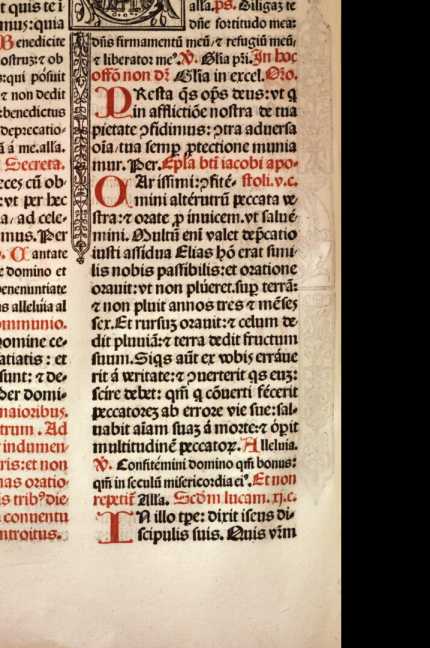 t quis te i
mus: quia
Benedicite
ostruz: ⁊ ob
s: qui posuit
⁊ non dedit
: benedictus
deprecatio-
ā a me. alla.
Secreta.
eces cū ob-
: vt per hec
a, ad cele-
mus. Per
Cantate
e domino et
benenuntiate
us alleluia al
ommunio.
omine ce-
atiatis: et
sunt: ⁊ de-
Per domi-
maioribus.
trum. Ad
indumen-
ris: et non
nas oratio-
is trib⁹ die-
conuentu
ntroitus.
alla. ps. Diligaz te
dn̄e fortitudo mea:
dn̄s firmamentū meū, ⁊ refugiū meū,
⁊ liberator me⁹. ℣. Glīa pr̄i. In hoc
offō non dr̄ Glīa in excel. Oro.
PResta qs op̄s deus: vt q
in afflictiōe nostra de tua
pietate ꝯfidimus: ꝯtra aduersa
oīa, tua semꝑ ꝓtectione munia
mur. Per. Ep̄la btī iacobi apo-
CAr issimi: ꝯfité- stoli. v. c.
mini altérutrū peccata ve
stra: ⁊ orate ꝓ inuicem. vt salué
mini. Multū enī valet dep̄catio
iusti assidua Elias hō erat simi
lis nobis passibilis: et oratione
orauit: vt non plúeret. suꝑ terrā:
⁊ non pluit annos tres ⁊ mēses
sex. Et rursuz orauit: ⁊ celum de-
dit pluuiā: ⁊ terra dedit fructum
suum. Siqs aūt ex vobis erráue
rit á veritate: ⁊ ꝯuerterit qs euz:
scire debet: qm̄ q cōuerti fécerit
peccatorez ab errore vie sue: sal-
uabit aīam suaz á morte: ⁊ óꝑit
multitudinē peccatoꝝ. Alleluia.
℣. Confitémini domino qm̄ bonus:
qm̄ in seculū misericordia ei⁹. Et non
repetit̄ Alla. Scd̄m lucam. xj. c.
IN illo tp̄e: dixit iesus di-
scipulis suis. Quis vr̄m